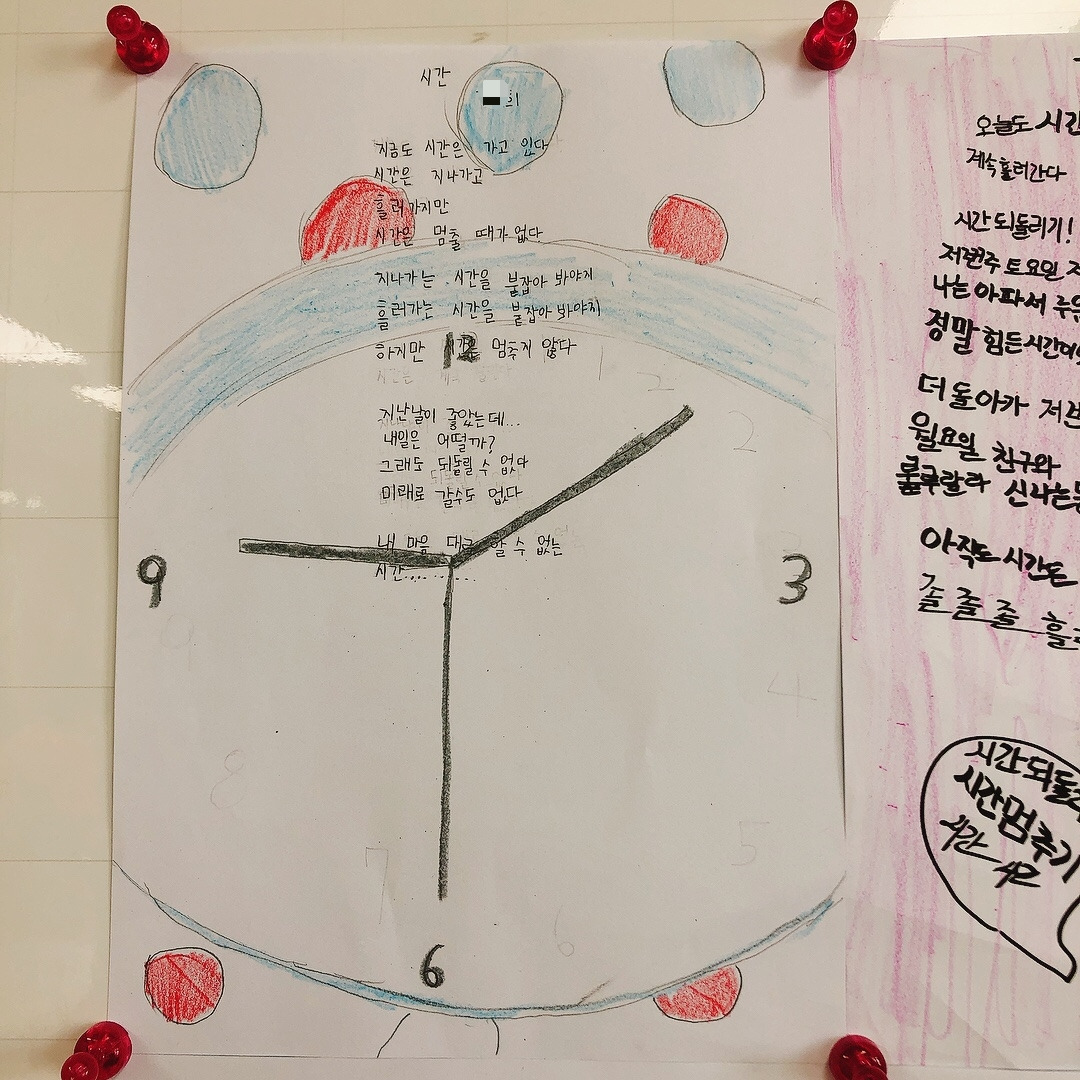 시간
희
지금도 시간은 가고 있다
시간은 지나가고
흘러가지만
시간은 멈출 때가 없다
지나가는 시간을 붙잡아 봐야지
흘러가는 시간을 붙잡아 봐야지
하지만 시간은 멈추지 않다
지난날이 좋았는데...
내일은 어떨까?
그래도 되돌릴 수 없다
미래로 갈수도 없다
내 마음 대로 할 수 없는
시간..........
12
1
2
2
3
4
5
6
6
7
8
9
9
오늘도 시간
계속 흘러간다
시간 되돌리기!
저번주 토요일
나는 아파서
정말 힘든 시간이
더 돌아가
월요일 친구와
룰루랄라 신나는
아직도 시간은
졸 졸 졸
시간 되돌
시간 멈추기
시간